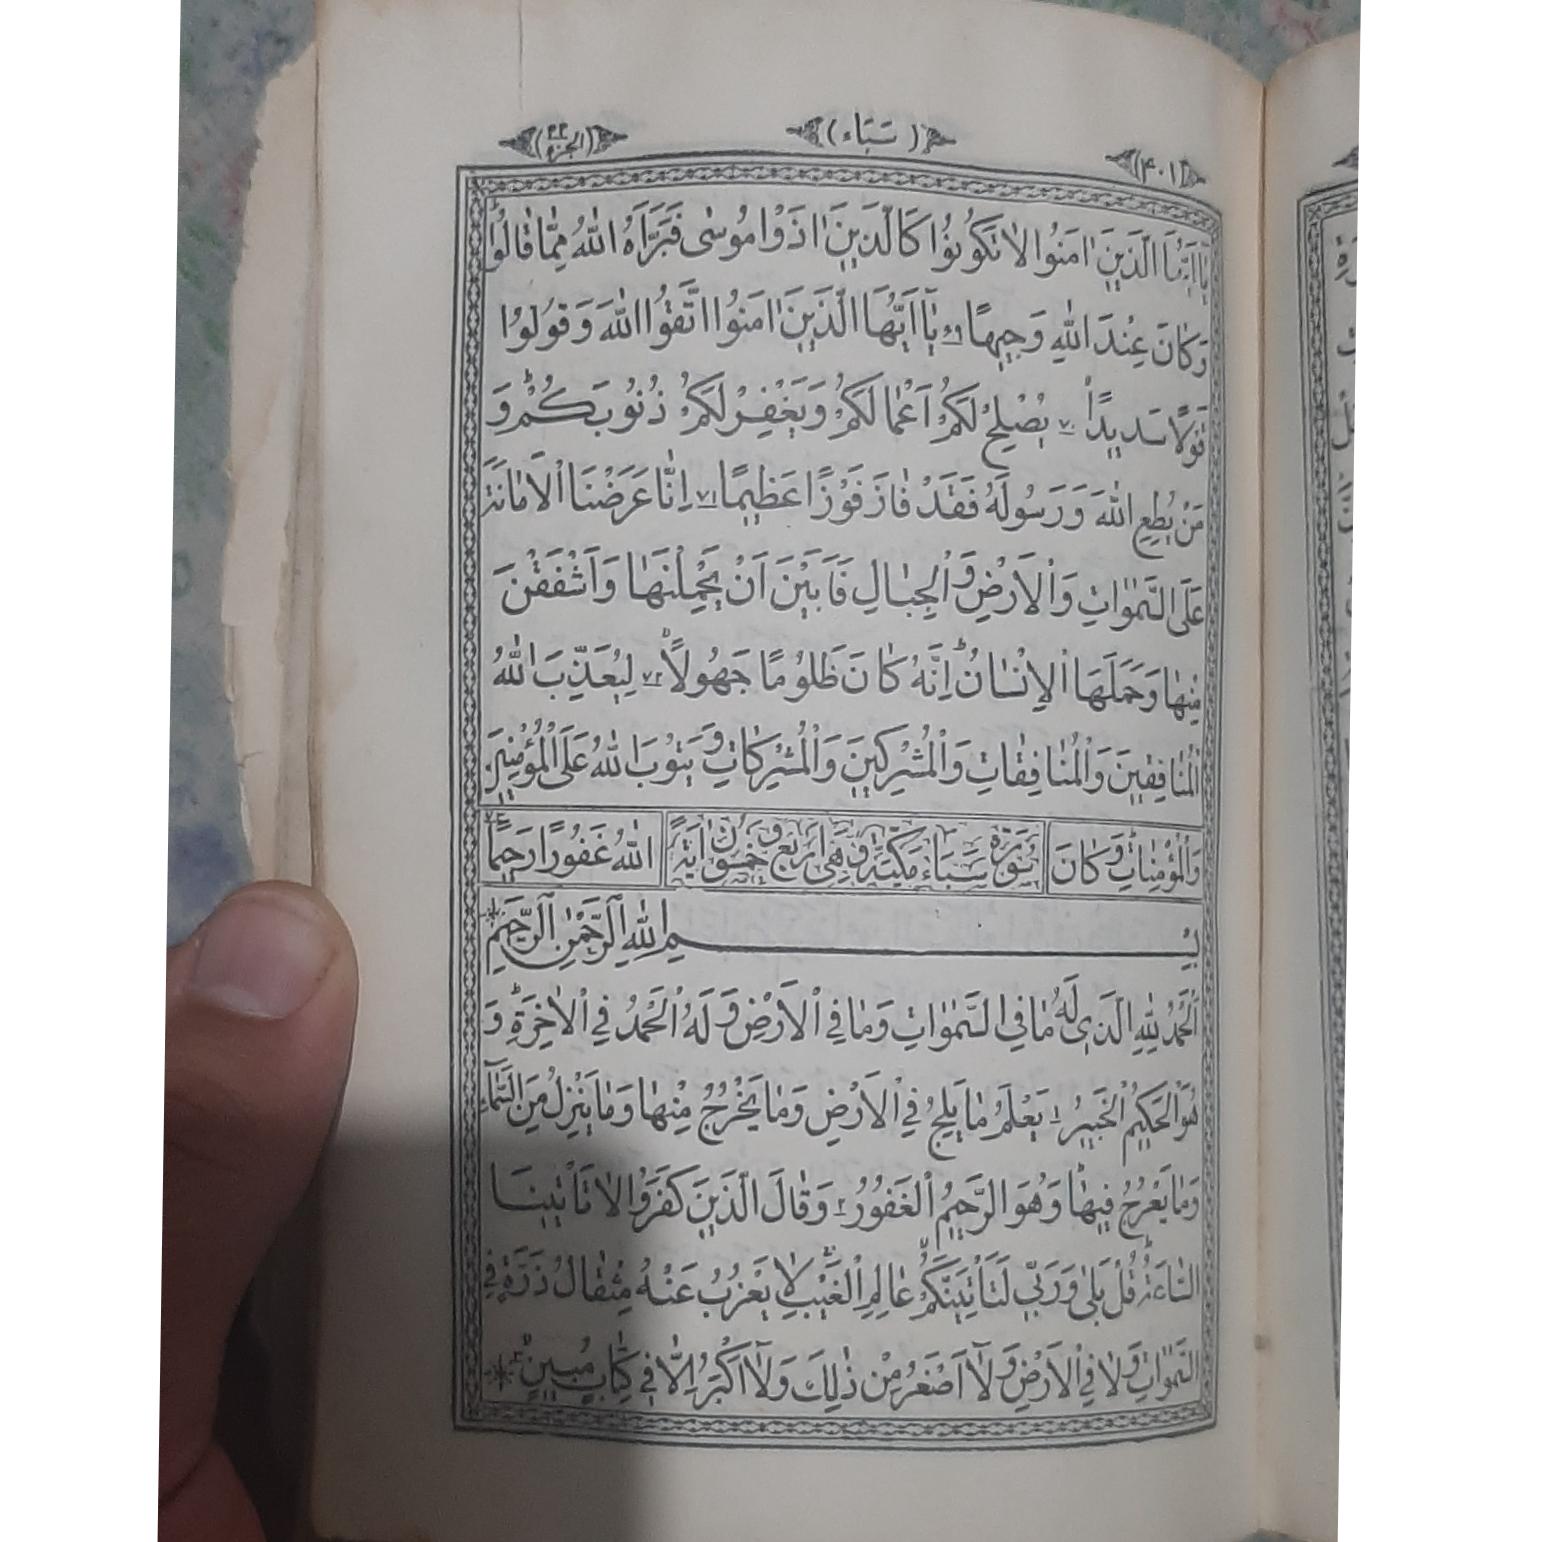 (الجزء ٢٢) (سَبَاء) (٤٠١)
يٰا اَيُّهَا الَّذِينَ اٰمَنُوا لاٰ تَكُونُوا كَالَّذِينَ اٰذَوْا مُوسٰى فَبَرَّاَهُ اللّٰهُ مِمّٰا قٰالُواۘ
وَكٰانَ عِنْدَ اللّٰهِ وَجِيهًا ٦٩ يٰآ اَيُّهَا الَّذِينَ اٰمَنُوا اتَّقُوا اللّٰهَ وَقُولُوا
قَوْلًا سَدِيدًا ٧٠ يُصْلِحْ لَكُمْ اَعْمٰالَكُمْ وَيَغْفِرْ لَكُمْ ذُنُوبَكُمْ وَ
مَنْ يُطِعِ اللّٰهَ وَرَسُولَهُ فَقَدْ فٰازَ فَوْزًا عَظِيمًا ٧١ اِنّٰا عَرَضْنَا الْاَمٰانَةَ
عَلَى السَّمٰوٰاتِ وَالْاَرْضِ وَالْجِبٰالِ فَاَبَيْنَ اَنْ يَحْمِلْنَهٰا وَاَشْفَقْنَ
مِنْهٰا وَحَمَلَهَا الْاِنْسٰانُ اِنَّهُ كٰانَ ظَلُومًا جَهُولًا ٧٢ لِيُعَذِّبَ اللّٰهُ
الْمُنٰافِقِينَ وَالْمُنٰافِقٰاتِ وَالْمُشْرِكِينَ وَالْمُشْرِكٰاتِ وَيَتُوبَ اللّٰهُ عَلَى الْمُؤْمِنِينَ
وَالْمُؤْمِنٰاتِ وَكٰانَ سُورَةُ سَبَاء مَكِّيَّةٌ وَهِيَ اَرْبَعٌ وَخَمْسُونَ اٰيَةً اللّٰهُ غَفُورًا رَحِيمًا ٧٣
بِسْمِ اللّٰهِ الرَّحْمٰنِ الرَّحِيمِ *
اَلْحَمْدُ لِلّٰهِ الَّذِي لَهُ مٰا فِي السَّمٰوٰاتِ وَمٰا فِي الْاَرْضِ وَلَهُ الْحَمْدُ فِي الْاٰخِرَةِ وَ
هُوَ الْحَكِيمُ الْخَبِيرُ ١ يَعْلَمُ مٰا يَلِجُ فِي الْاَرْضِ وَمٰا يَخْرُجُ مِنْهٰا وَمٰا يَنْزِلُ مِنَ السَّمٰآءِ
وَمٰا يَعْرُجُ فِيهٰا وَهُوَ الرَّحِيمُ الْغَفُورُ ٢ وَقٰالَ الَّذِينَ كَفَرُوا لاٰ تَاْتِينَا
السّٰاعَةُ قُلْ بَلٰى وَرَبِّي لَتَاْتِيَنَّكُمْ عٰالِمِ الْغَيْبِ لاٰ يَعْزُبُ عَنْهُ مِثْقٰالُ ذَرَّةٍ فِي
السَّمٰوٰاتِ وَلاٰ فِي الْاَرْضِ وَلآٰ اَصْغَرُ مِنْ ذٰلِكَ وَلآٰ اَكْبَرُ اِلّٰا فِي كِتٰابٍ مُبِينٍ ٣ *